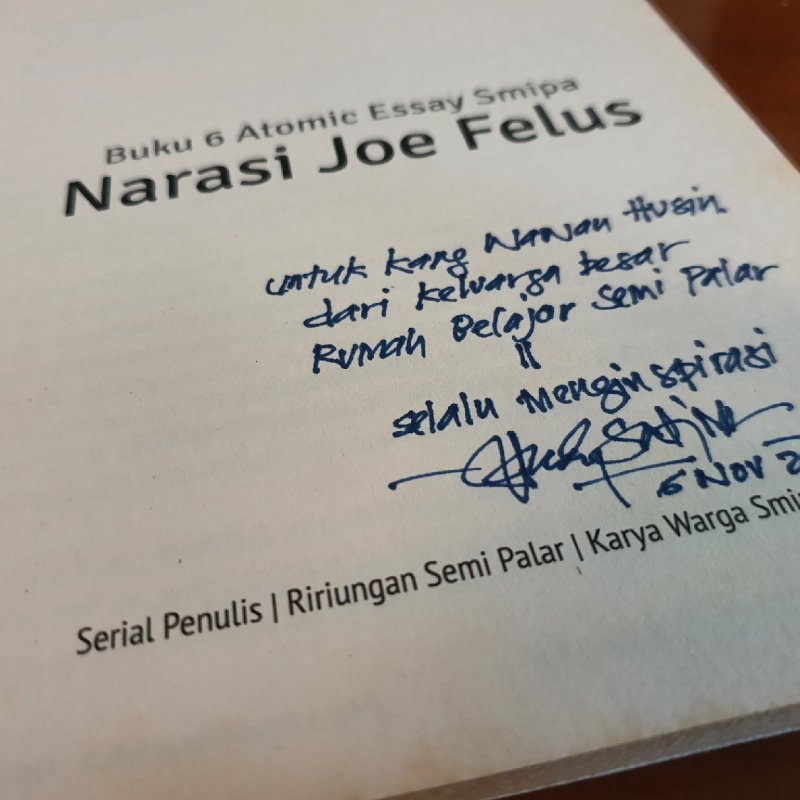 Buku 6 Atomic Essay Smipa
Narasi Joe Felus
untuk Kang Nanan Husin
dari keluarga besar
Rumah Belajar Semi Palar
selalu Menginspirasi
6 Nov 2
Serial Penulis | Ririungan Semi Palar | Karya Warga Smi